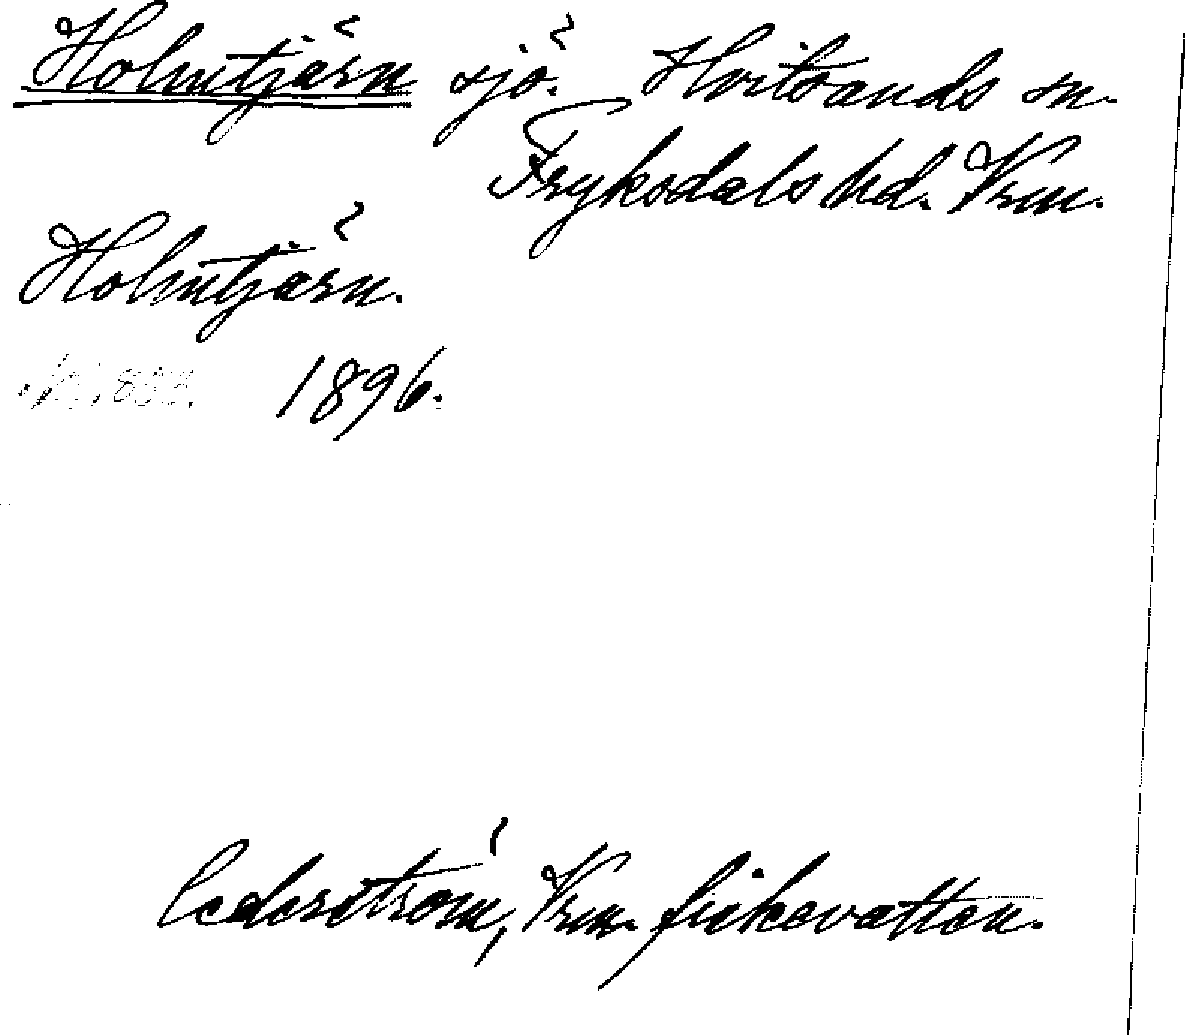 Holmtjärn sjö. Hvitsands sn.
Fryksdals hd. Vrm.
Holmtjärn.
1896.
Cederström, Vrm. fiskevatten.